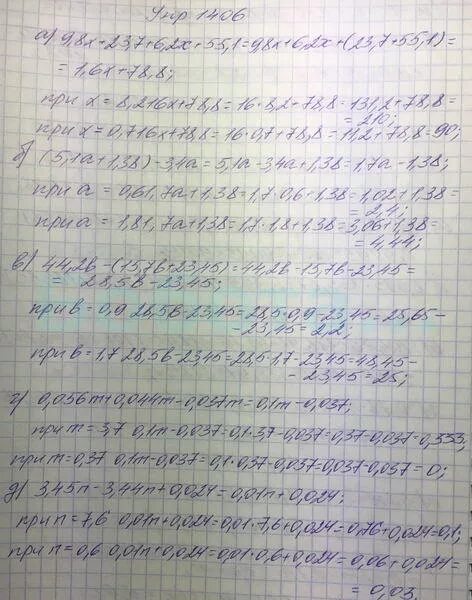 Упр 1406
а) 9,8х+23,7+6,2х+55,1=9,8х+6,2х+(23,7+55,1)=
= 1,6х+78,8;
при х = 8,2 16х+78,8=16·8,2+78,8=131,2+78,8=
= 210;
при х = 0,7 16х+78,8=16·0,7+78,8=11,2+78,8=90;
б) (5,1а+1,38)-3,4а=5,1а-3,4а+1,38=1,7а-1,38;
при а = 0,6 1,7а+1,38=1,7·0,6+1,38=1,02+1,38=
= 2,4;
при а = 1,8 1,7а+1,38=1,7·1,8+1,38=3,06+1,38=
= 4,44;
в) 44,2в-(15,7в+23,45)=44,2в-15,7в-23,45=
= 28,5в-23,45;
при в = 0,9 28,5в-23,45=28,5·0,9-23,45=25,65-
-23,45=2,2;
при в = 1,7 28,5в-23,45=28,5·1,7-23,45=48,45-
-23,45=25;
г) 0,056m+0,044m-0,037m=0,1m-0,037;
при m=3,7 0,1m-0,037=0,1·3,7-0,037=0,37-0,037=0,333;
при m=0,37 0,1m-0,037=0,1·0,37-0,037=0,037-0,037=0;
д) 3,45n-3,44n+0,024=0,01n+0,024;
при n=7,6 0,01n+0,024=0,01·7,6+0,024=0,76+0,024=0,1;
при n=0,6 0,01n+0,024=0,01·0,6+0,024=0,06+0,024=
= 0,03.